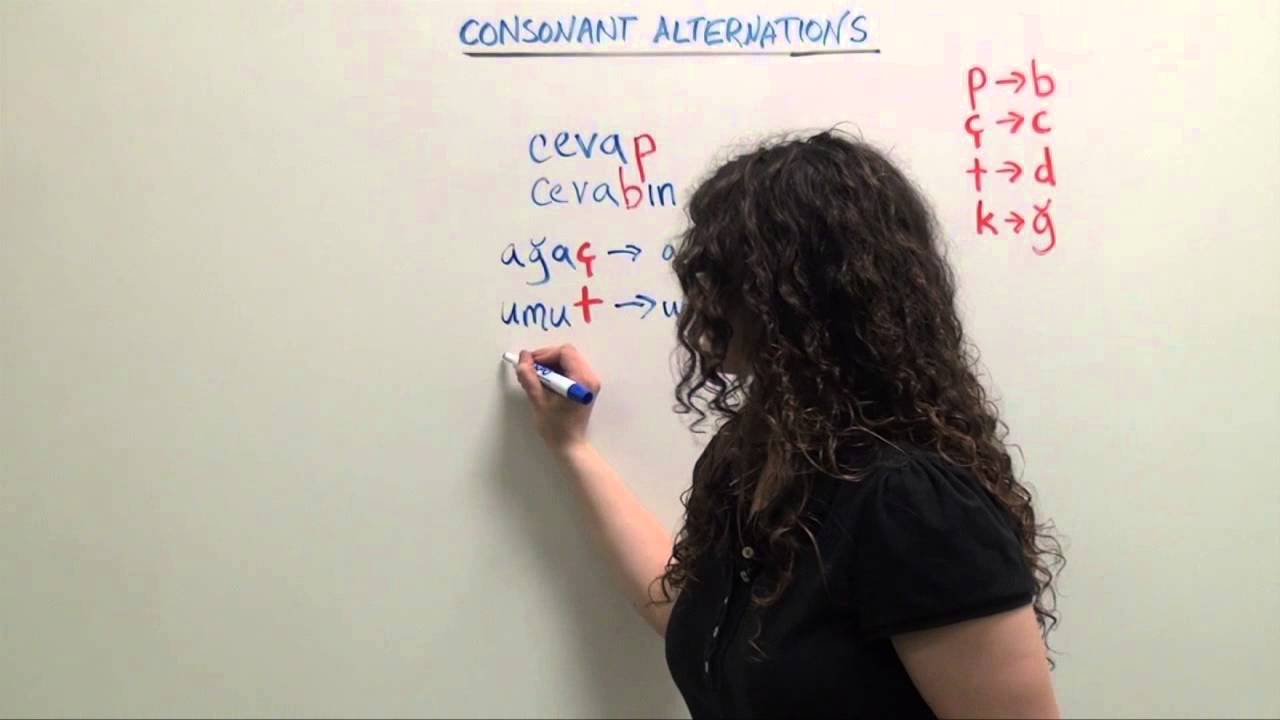 CONSONANT ALTERNATIONS
cevap
cevabın
ağaç →
umut →
p → b
ç → c
t → d
k → ğ